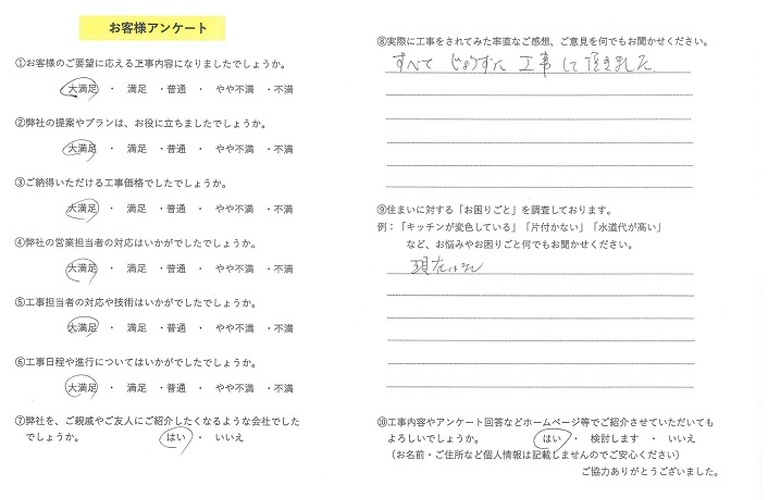 お客様アンケート
①お客様のご要望に応える工事内容になりましたでしょうか。
大満足 ・ 満足 ・普通 ・ やや不満 ・不満
②弊社の提案やプランは、お役に立ちましたでしょうか。
大満足 ・ 満足 ・普通 ・ やや不満 ・不満
③ご納得いただける工事価格でしたでしょうか。
大満足 ・ 満足 ・普通 ・ やや不満 ・不満
④弊社の営業担当者の対応はいかがでしたでしょうか。
大満足 ・ 満足 ・普通 ・ やや不満 ・不満
⑤工事担当者の対応や技術はいかがでしたでしょうか。
大満足 ・ 満足 ・普通 ・ やや不満 ・不満
⑥工事日程や進行についてはいかがでしたでしょうか。
大満足 ・ 満足 ・普通 ・ やや不満 ・不満
⑦弊社を、ご親戚やご友人にご紹介したくなるような会社でした
でしょうか。 はい ・ いいえ
⑧実際に工事をされてみた率直なご感想、ご意見を何でもお聞かせください。
すべて じょうずに 工事 して 頂きました
⑨住まいに対する「お困りごと」を調査しております。
例：「キッチンが変色している」「片付かない」「水道代が高い」
など、お悩みやお困りごと何でもお聞かせください。
現在はない
⑩工事内容やアンケート回答などホームページ等でご紹介させていただいても
よろしいでしょうか。 はい ・ 検討します ・ いいえ
（お名前・ご住所など個人情報は記載しませんのでご安心ください）
ご協力ありがとうございました。